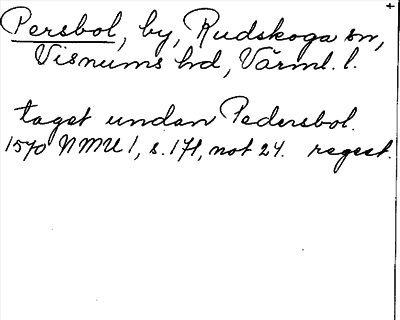 Persbol, by, Rudskoga sn,
Visnums hd, Värml. l.
taget undan Pedersbol.
1570 NMU 1, s. 171, not 24. regest.